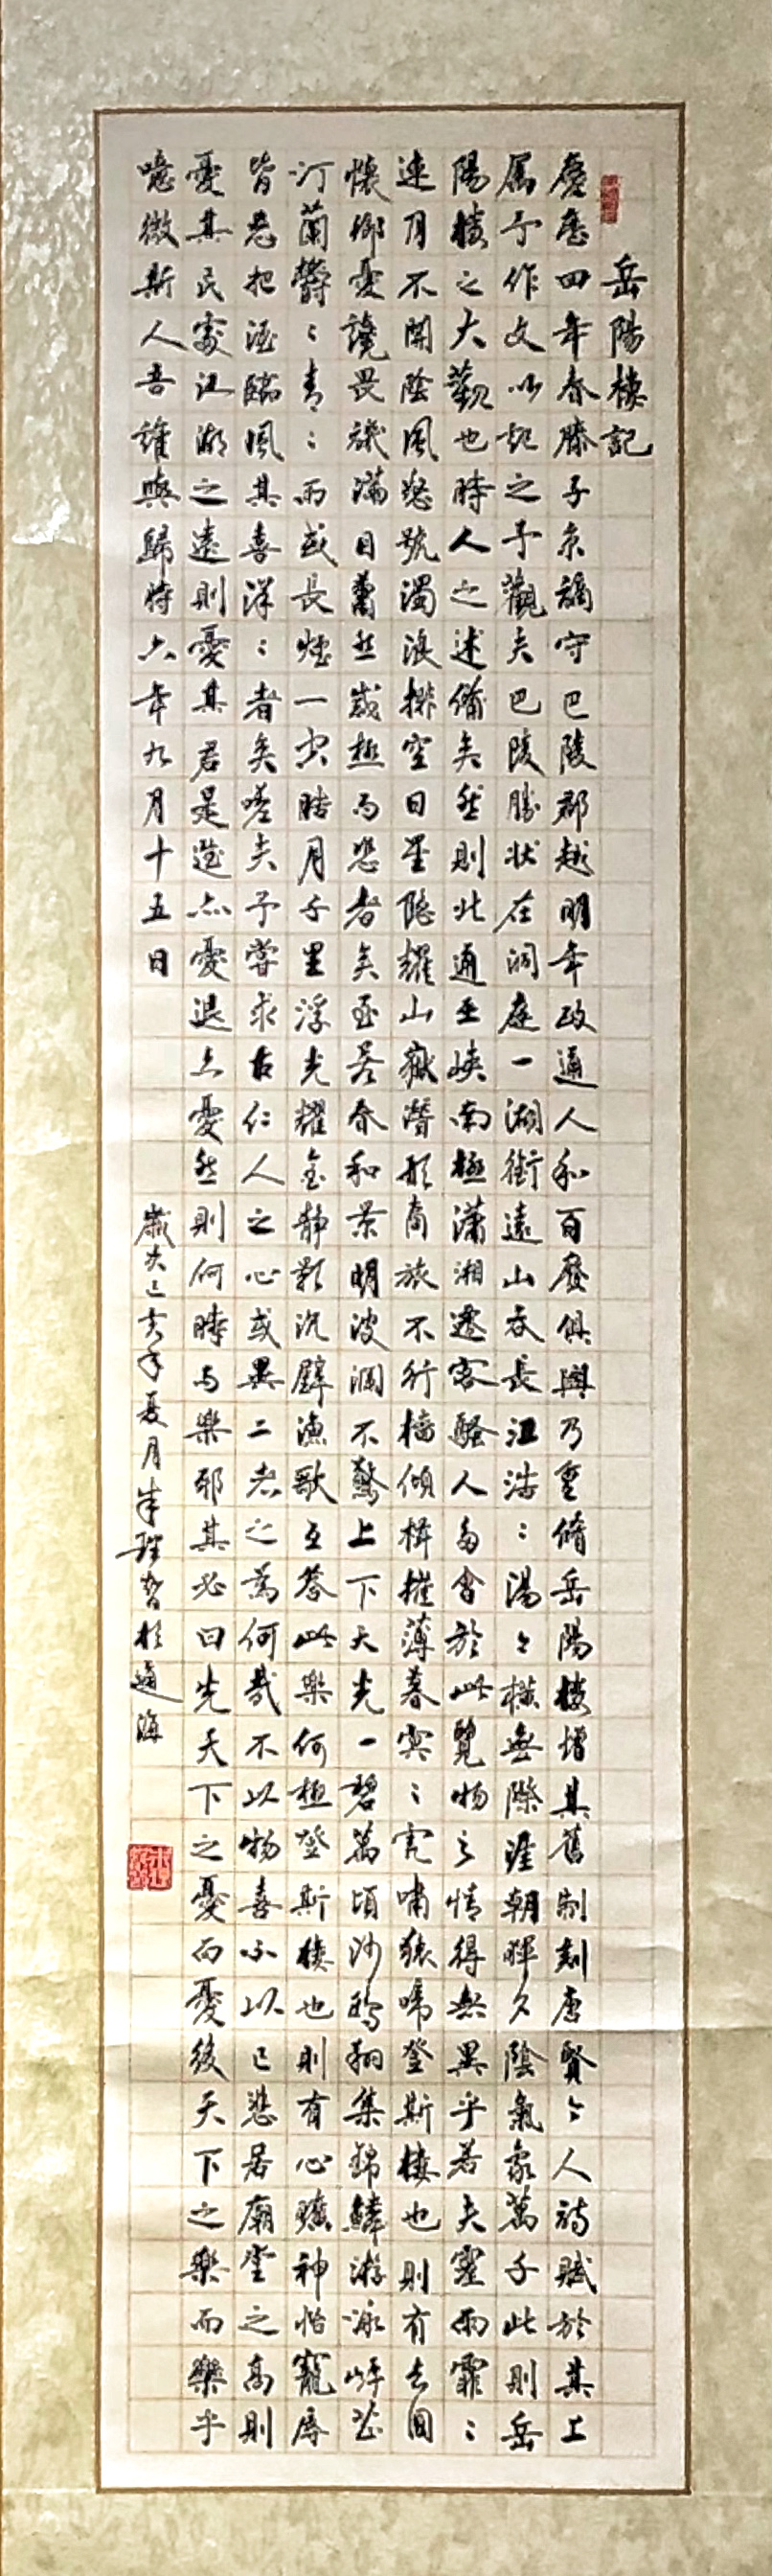 岳陽樓記
慶歷四年春滕子京謫守巴陵郡越明年政通人和百廢俱興乃重脩岳陽樓增其舊制刻唐賢今人詩賦於其上
屬予作文以記之予觀夫巴陵勝狀在洞庭一湖銜遠山吞長江浩ミ湯ミ橫無際涯朝暉夕陰氣象萬千此則岳
陽樓之大觀也時人之述備矣然則北通巫峽南極瀟湘遷客騷人多會於此覽物之情得無異乎若夫霪雨霏ミ
連月不開陰風怒號濁浪排空日星隱耀山嶽潛形商旅不行檣傾楫摧薄暮冥ミ虎嘯猿啼登斯樓也則有去國
懷鄉憂讒畏譏滿目蕭然感極而悲者矣至若春和景明波瀾不驚上下天光一碧萬頃沙鷗翔集錦鱗游泳岸芷
汀蘭鬱ミ青ミ而或長煙一空皓月千里浮光耀金靜影沉璧漁歌互答此樂何極登斯樓也則有心曠神怡寵辱
皆忘把酒臨風其喜洋ミ者矣嗟夫予嘗求古仁人之心或異二者之為何哉不以物喜不以己悲居廟堂之高則
憂其民處江湖之遠則憂其君是進亦憂退亦憂然則何時而樂耶其必曰先天下之憂而憂後天下之樂而樂乎
噫微斯人吾誰與歸時六年九月十五日
歲次己亥年夏月朱理哲於通海